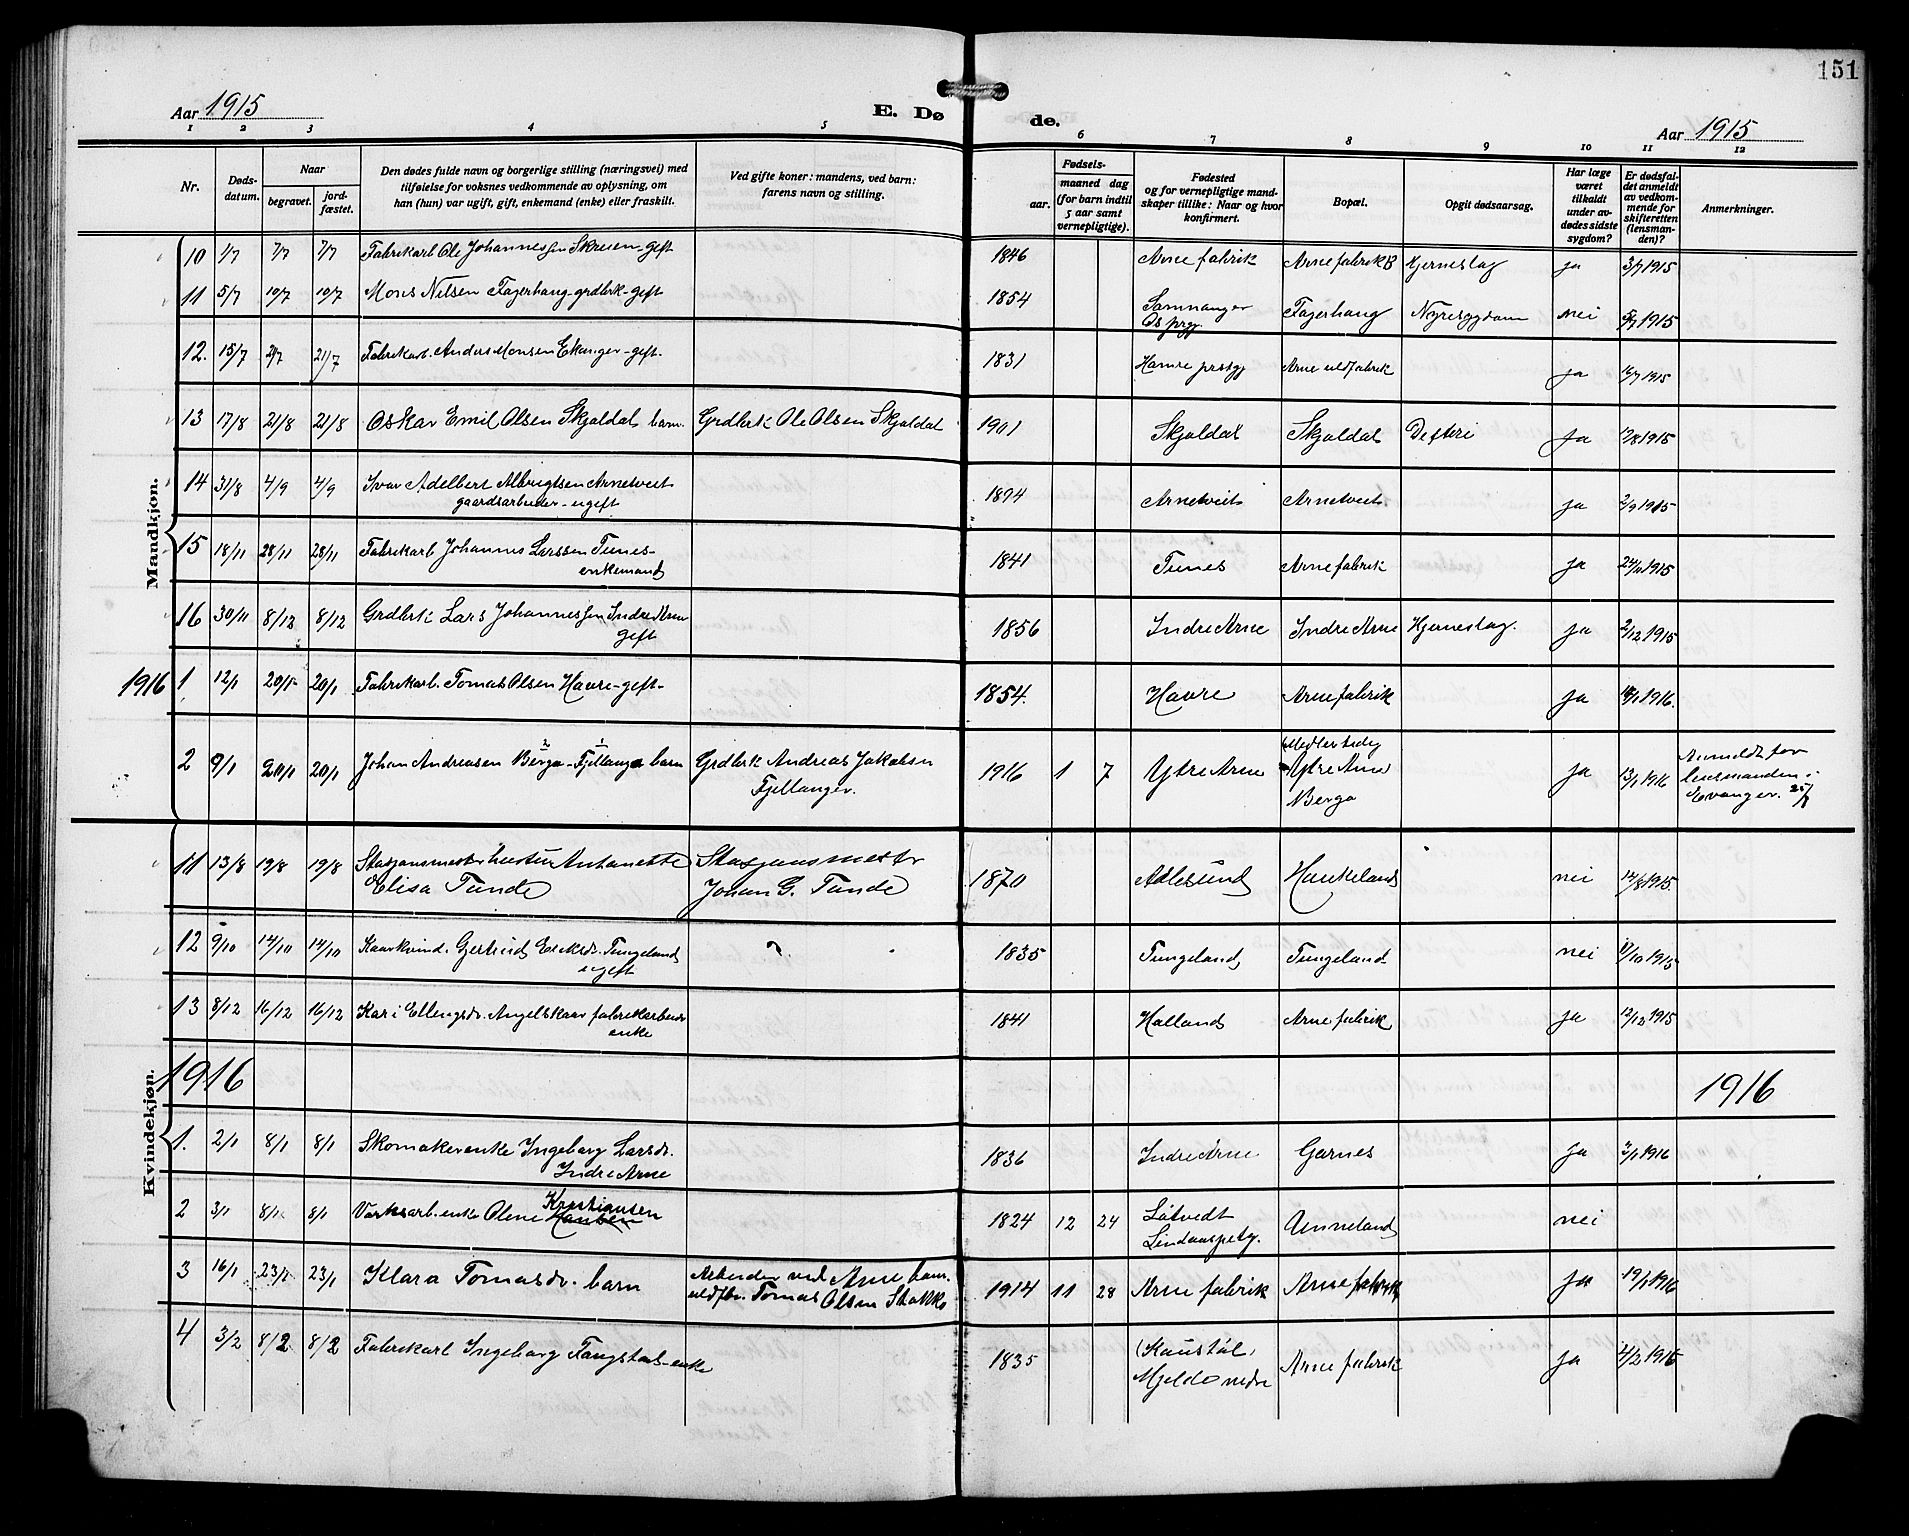 151
Aar 1915
E. Dø de.
Aar 1915
1 2 3 4 5 6 7 8 9 10 11 12
Nr.
Døds-
datum.
Naar
begravet.
jord-
fæstet.
Den dødes fulde navn og borgerlige stilling (næringsvei) med
tilføielse for voksnes vedkommende av oplysning, om
han (hun) var ugift, gift, enkemand (enke) eller fraskilt.
Ved gifte koner: mandens, ved barn:
farens navn og stilling.
Fødsels-
aar.
maaned dag
(for barn indtil
5 aar samt
vernepligtige).
Fødested
og for vernepligtige mand-
skaper tillike: Naar og hvor
konfirmert.
Bopæl.
Opgit dødsaarsag.
Har læge
været
tilkaldt
under av-
dødes sidste
sygdom?
Er dødsfal-
det anmeldt
av vedkom-
mende for
skifteretten
(lensman-
den)?
Anmerkninger.
Mandkjøn.
10 1/7 7/7 7/7 Fabrikarb Ole Johannessen Skreien - gift 1846 Arne fabrik Arne fabrik Hjerneslag ja 3/7 1915
11 5/7 10/7 10/7 Mons Nilsen Fagerhaug - grdbrk - gift 1854 Samnanger Fagerhaug Nyresygdom nei 5/7 1915
Os prgj.
12. 15/7 21/7 21/7 Fabrikarb. Anders Monsen Ekanger - gift. 1831 Hamre prstgj Arne uldfabrik ja 16/7 1915
13 17/8 21/8 21/8 Oskar Emil Olsen Skjoldal barn. Grdbrk Ole Olsen Skjoldal 1901 Skjoldal Skjoldal Difteri Ja 17/8 1915
14 31/8 4/9 4/9 Ivar Adelbert Albrigtsen Arnetveit 1894 Arnetveit Arnetveit ja 2/9 1915
gaardsarbeider - ugift
15 18/11 28/11 28/11 Fabrikarb Johannes Larssen Tunes - 1841 Tunes Arne fabrik ja 24/11 1915
enkemand
16 30/11 8/12 8/12 Grdbrk Lars Johannessen Indre Arne 1856 Indre Arne Indre Arne Hjerneslag. ja 2/12 1915
gift
1916 1 12/1 20/1 20/1 Fabrikarb. Tomas Olsen Havre - gift - 1854. Havre Arne fabrik ja 1916.
2 9/1 20/1 20/1 Johan Andreasen Berge - Fjellanger barn Grdbrk Andreas Jakobsen 1916 1 7 Ytre Arne Midlertidig ja 13/1 1916 Anmeldt for
Fjellanger. Ytre Arne lensmanden i
Berge Evanger.
Kvindekjøn.
11 13/8 19/8 19/8 Stasjonsmesterhustru Antonette Stasjonsmester 1870 Aalesund Haukeland nei 14/8 1915.
Elisa Tunde Johan G. Tunde
12 9/10 14/10 14/10 Kaarkvind. Gjertrud Eriksdr. Tungeland 1835 Tungeland Tungeland nei 11/10 1915
ugift
13 8/12 16/12 16/12 Kari Ellingsdr. Angelskaar fabrikarbeider 1841 Halland Arne fabrik Ja 12/12 1915
enke
1916 1916
1. 2/1 8/1 8/1 Skomakerenke Ingeborg Larsdr. 1836 Indre Arne Garnes Ja 3/1 1916
Indre Arne
2 3/1 8/1 8/1 Verksarb. enke Oline Kristiansen 1824 12 24 Låtvedt Unneland nei
Lindaasprstg.
3 16/1 23/1 23/1 Klara Tomasdr. barn Arbeider ved Arne bom. 1914 11 28 Arne fabrik Arne fabrik ja 19/1 1916
uldfbr. Tomas Olsen Stokke
4 3/2 8/2 8/2 Fabrikarb Ingeborg Tangstad - enke 1835 Arne fabrik ja 4/2 1916
Mjelde nedre